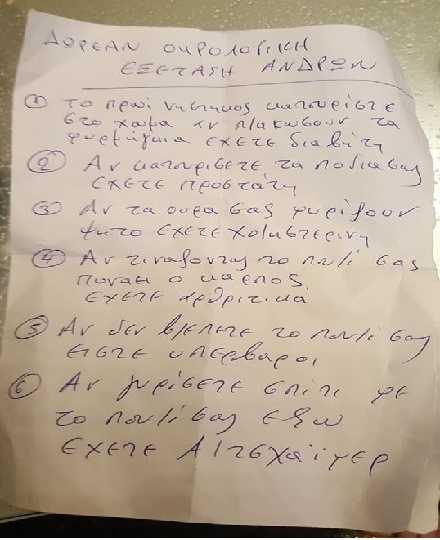 ΔΩΡΕΑΝ ΟΥΡΟΛΟΓΙΚΗ
ΕΞΕΤΑΣΗ ΑΝΔΡΩΝ
① το πρωι νηστικος κατουρίστε
στο χωμα αν πλακωσουν τα
μυρμήγκια εχετε διαβήτη
② Αν κατουρισετε τα ποδια σας
εχετε προστάτη
③ Αν τα ουρα σας μυρίζουν
ψητο εχετε χοληστερινη
④ Αν τιναζοντας το πουλί σας
πονάει ο καρπος
εχετε αρθριτικά
⑤ Αν δεν βλεπετε το πουλί σας
ειστε υπερβαροι
⑥ Αν γυρίσετε σπίτι με
το πουλί σας εξω
εχετε Αλτσχάϊμερ